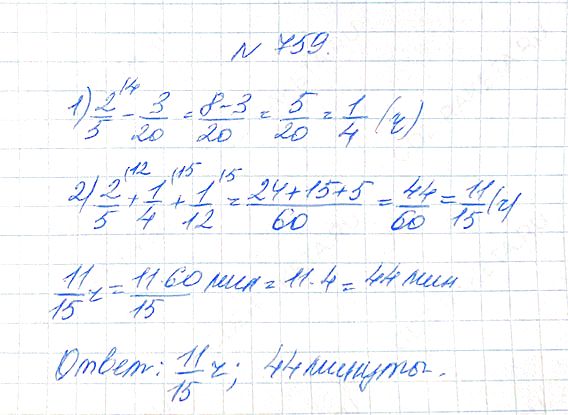 N 759.
1) 2/5 (4 - 3/20 = 8-3/20 = 5/20 = 1/4 (ч)
2) 2/5 (12 + 1/4 (15 + 1/12 (5 = 24+15+5/60 = 44/60 = 11/15 (ч)
11/15 ч = 11·60/15 мин = 11·4 = 44 мин
Ответ: 11/15 ч; 44 минуты.